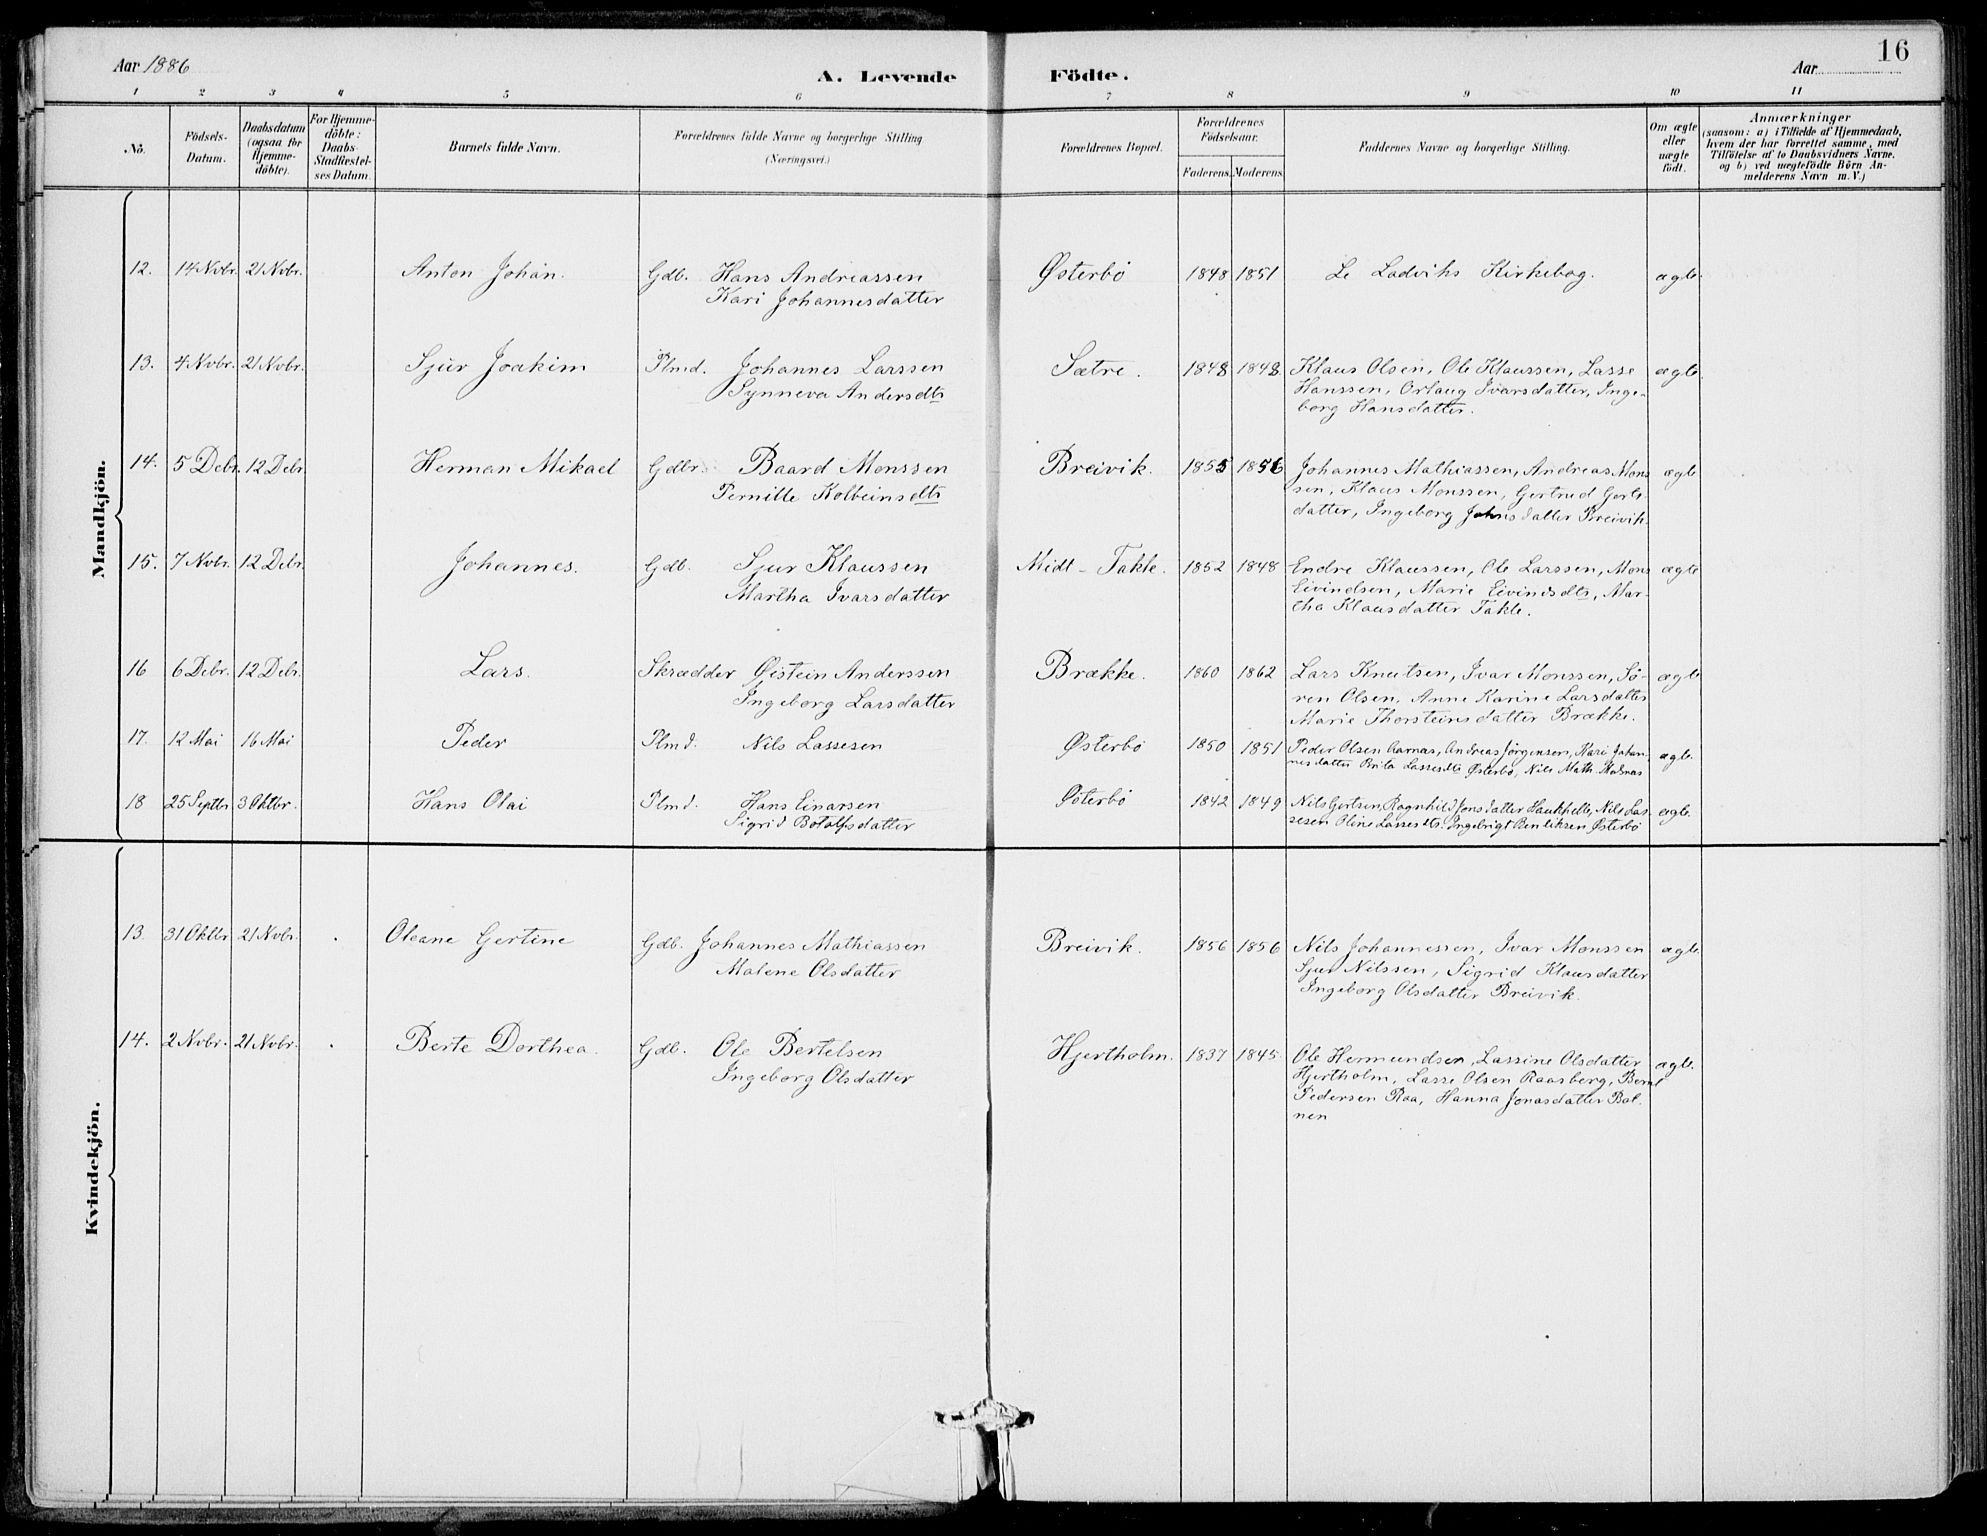 Aar 1886
A. Levende Födte.
Aar
16
1 2 3 4 5 6 7 8 9 10 11
No.
Födsels-Datum.
Daabsdatum (ogsaa for Hjemme-döbte).
For Hjemme-döbte: Daabs-Stadfæstel-ses Datum.
Barnets fulde Navn.
Forældrenes fulde Navne og borgerlige Stilling (Næringsvei.)
Forældrenes Bopæl.
Forældrenes Födselsaar.
Faderens. Moderens.
Faddernes Navne og borgerlige Stilling.
Om ægte eller uægte födt.
Anmærkninger
(saasom: a) i Tilfælde af Hjemmedaab,
hvem der har forrettet samme, med
Tilföielse af to Daabsvidners Navne,
og b) ved uægtefödte Börn An-
melderens Navn m. V.)
Mandkjön.
12. 14 Nvbr. 21 Nvbr. Anton Johan. Gdb. Hans Andreassen Østerbö 1848 1851 Se Ladviks Kirkebog. ægte.
Kari Johannesdatter
13. 4 Nvbr. 21 Nvbr. Sjur Joakim Plmd. Johannes Larssen Sætre. 1848 1848 Klaus Olsen, Ole Klaussen, Lasse ægte.
Synneva Andersdtr Hanssen, Orlaug Ivarsdatter, Inge-
borg Hansdatter.
14. 5 Debr. 12 Debr. Herman Mikael Gdbr. Baard Monssen Breivik. 1855 1856 Johannes Mathiassen, Andreas Mons ægte
Pernille Kolbeinsdtr sen, Klaus Monssen, Gertrud Gerts
datter, Ingeborg Johnsdatter Breivik.
15. 7 Nvbr. 12 Debr. Johannes. Gdb. Sjur Klaussen Midt-Takle. 1852 1848 Endre Klaussen, Ole Larssen, Mons ægte
Martha Ivarsdatter Eivindsen, Marie Eivindsdtr, Mar-
tha Klausdatter Takle.
16 6 Debr. 12 Debr. Lars. Skrædder Øistein Anderssen Brække. 1860 1862 Lars Knutsen, Ivar Monssen, Sö- ægte
Ingeborg Larsdatter ren Olsen, Anne Karine Larsdatter
Marie Thorsteinsdatter Brække.
17. 12 Mai 16 Mai Peder Plmd. Nils Lassesen Østerbö 1850 1851 Peder Olsen Aarnas, Andreas Jørgensen, Kari Johan- ægte.
nesdatter Brita Lassesdtr Østerbö, Nils Math.
18 25 Septbr 3 Oktbr. Hans Olai Plmd. Hans Einarsen Østerbö 1842 1849 Nils Gertsen, Ragnhild Jonsdatter, Nils Las- ægte.
Sigrid Botolfsdatter sesen Oline Lassesdtr. Ingebrigt Østerbö
Kvindekjön.
13. 31 Oktbr 21 Nvbr. Oleane Gertine Gdb. Johannes Mathiassen Breivik. 1856 1856 Nils Johannessen, Ivar Monssen ægte.
Malene Olsdatter Sjur Nilssen, Sigrid Klausdatter
Ingeborg Olsdatter Breivik.
14. 2 Nvbr. 21 Nvbr. Berte Dorthea. Gdb. Ole Bertelsen Hjertholm. 1837 1845 Ole Hermundsen, Lassine Olsdatter ægte.
Ingeborg Olsdatter Hjertholm, Lasse Olsen Raasberg, Bernt
Pedersen Raa, Hanna Jonasdatter Bol-
nen